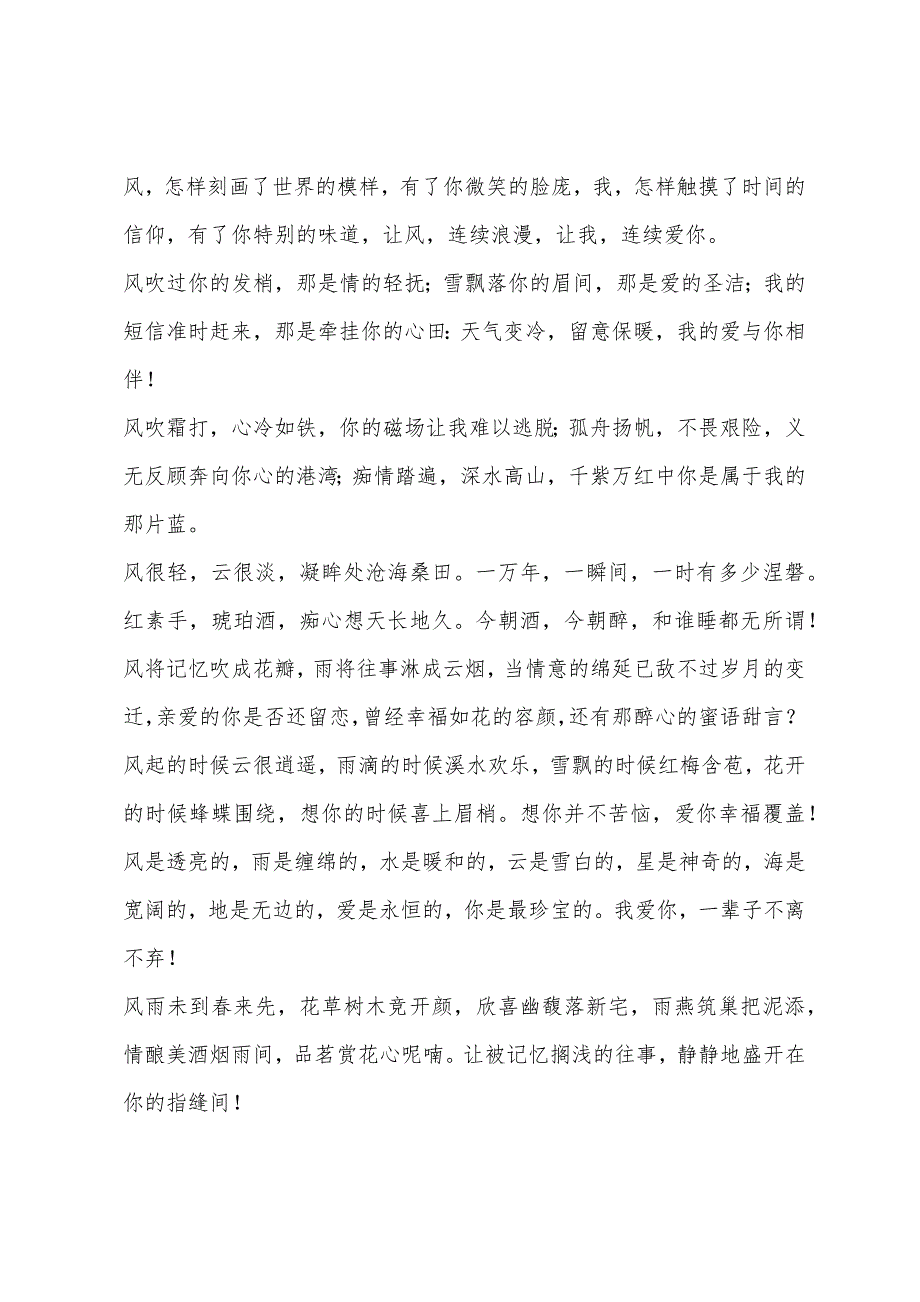 风，怎样刻画了世界的模样，有了你微笑的脸庞，我，怎样触摸了时间的
信仰，有了你特别的味道，让风，连续浪漫，让我，连续爱你。
风吹过你的发梢，那是情的轻抚；雪飘落你的眉间，那是爱的圣洁；我的
短信准时赶来，那是牵挂你的心田：天气变冷，留意保暖，我的爱与你相
伴！
风吹霜打，心冷如铁，你的磁场让我难以逃脱；孤舟扬帆，不畏艰险，义
无反顾奔向你心的港湾；痴情踏遍，深水高山，千紫万红中你是属于我的
那片蓝。
风很轻，云很淡，凝眸处沧海桑田。一万年，一瞬间，一时有多少涅磐。
红素手，琥珀酒，痴心想天长地久。今朝酒，今朝醉，和谁睡都无所谓！
风将记忆吹成花瓣，雨将往事淋成云烟，当情意的绵延已敌不过岁月的变
迁，亲爱的你是否还留恋，曾经幸福如花的容颜，还有那醉心的蜜语甜言？
风起的时候云很逍遥，雨滴的时候溪水欢乐，雪飘的时候红梅含苞，花开
的时候蜂蝶围绕，想你的时候喜上眉梢。想你并不苦恼，爱你幸福覆盖！
风是透亮的，雨是缠绵的，水是暖和的，云是雪白的，星是神奇的，海是
宽阔的，地是无边的，爱是永恒的，你是最珍宝的。我爱你，一辈子不离
不弃！
风雨未到春来先，花草树木竞开颜，欣喜幽馥落新宅，雨燕筑巢把泥添，
情酿美酒烟雨间，品茗赏花心呢喃。让被记忆搁浅的往事，静静地盛开在
你的指缝间！